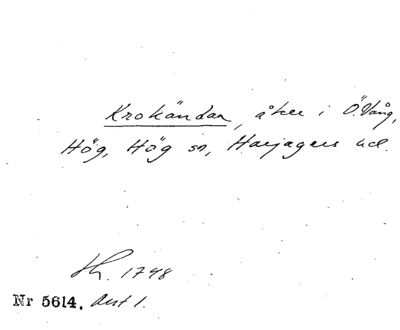 Krokändan, åker i Ö. Vång,
Hög, Hög sn, Harjagers hd.
Sk. 1748
Nr 5614. Avst 1.